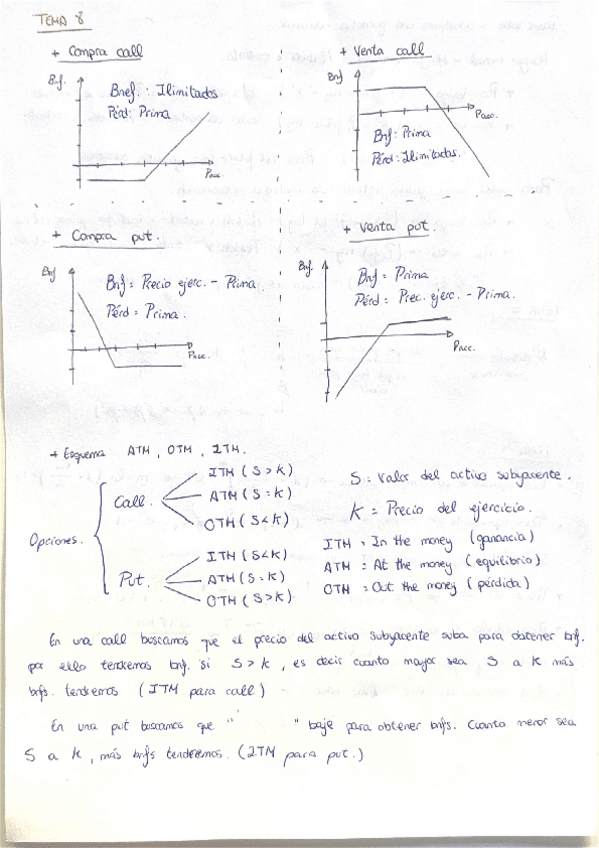 TEMA 8
+ Compra call
Bnf.
Bnef. : Ilimitados
Pérd: Prima
Pacc
+ Venta call
Bnf
Pacc.
Bnf: Prima
Pérd: Ilimitadas.
+ Compra put.
Bnf
Bnf = Precio ejerc. - Prima.
Pérd = Prima.
Pacc.
+ Venta put.
Bnf.
Bnf = Prima
Pérd = Prec. ejerc. - Prima.
Pacc.
+ Esquema ATM, OTM, ITM.
Opciones.
Call.
ITM (S > K)
ATM (S = K)
OTM (S < K)
Put.
ITM (S < K)
ATM (S = K)
OTM (S > K)
S = Valor del activo subyacente.
K = Precio del ejercicio.
ITM = In the money (ganancia)
ATM = At the money (equilibrio)
OTM = Out the money (pérdida)
En una call buscamos que el precio del activo subyacente suba para obtener bnf.
por ello tendremos bnf. si S > K, es decir cuanto mayor sea S a K más
bnfs. tendremos (ITM para call)
En una put buscamos que " " baje para obtener bnfs. Cuanto menor sea
S a K, más bnfs tendremos. (ITM para put.)